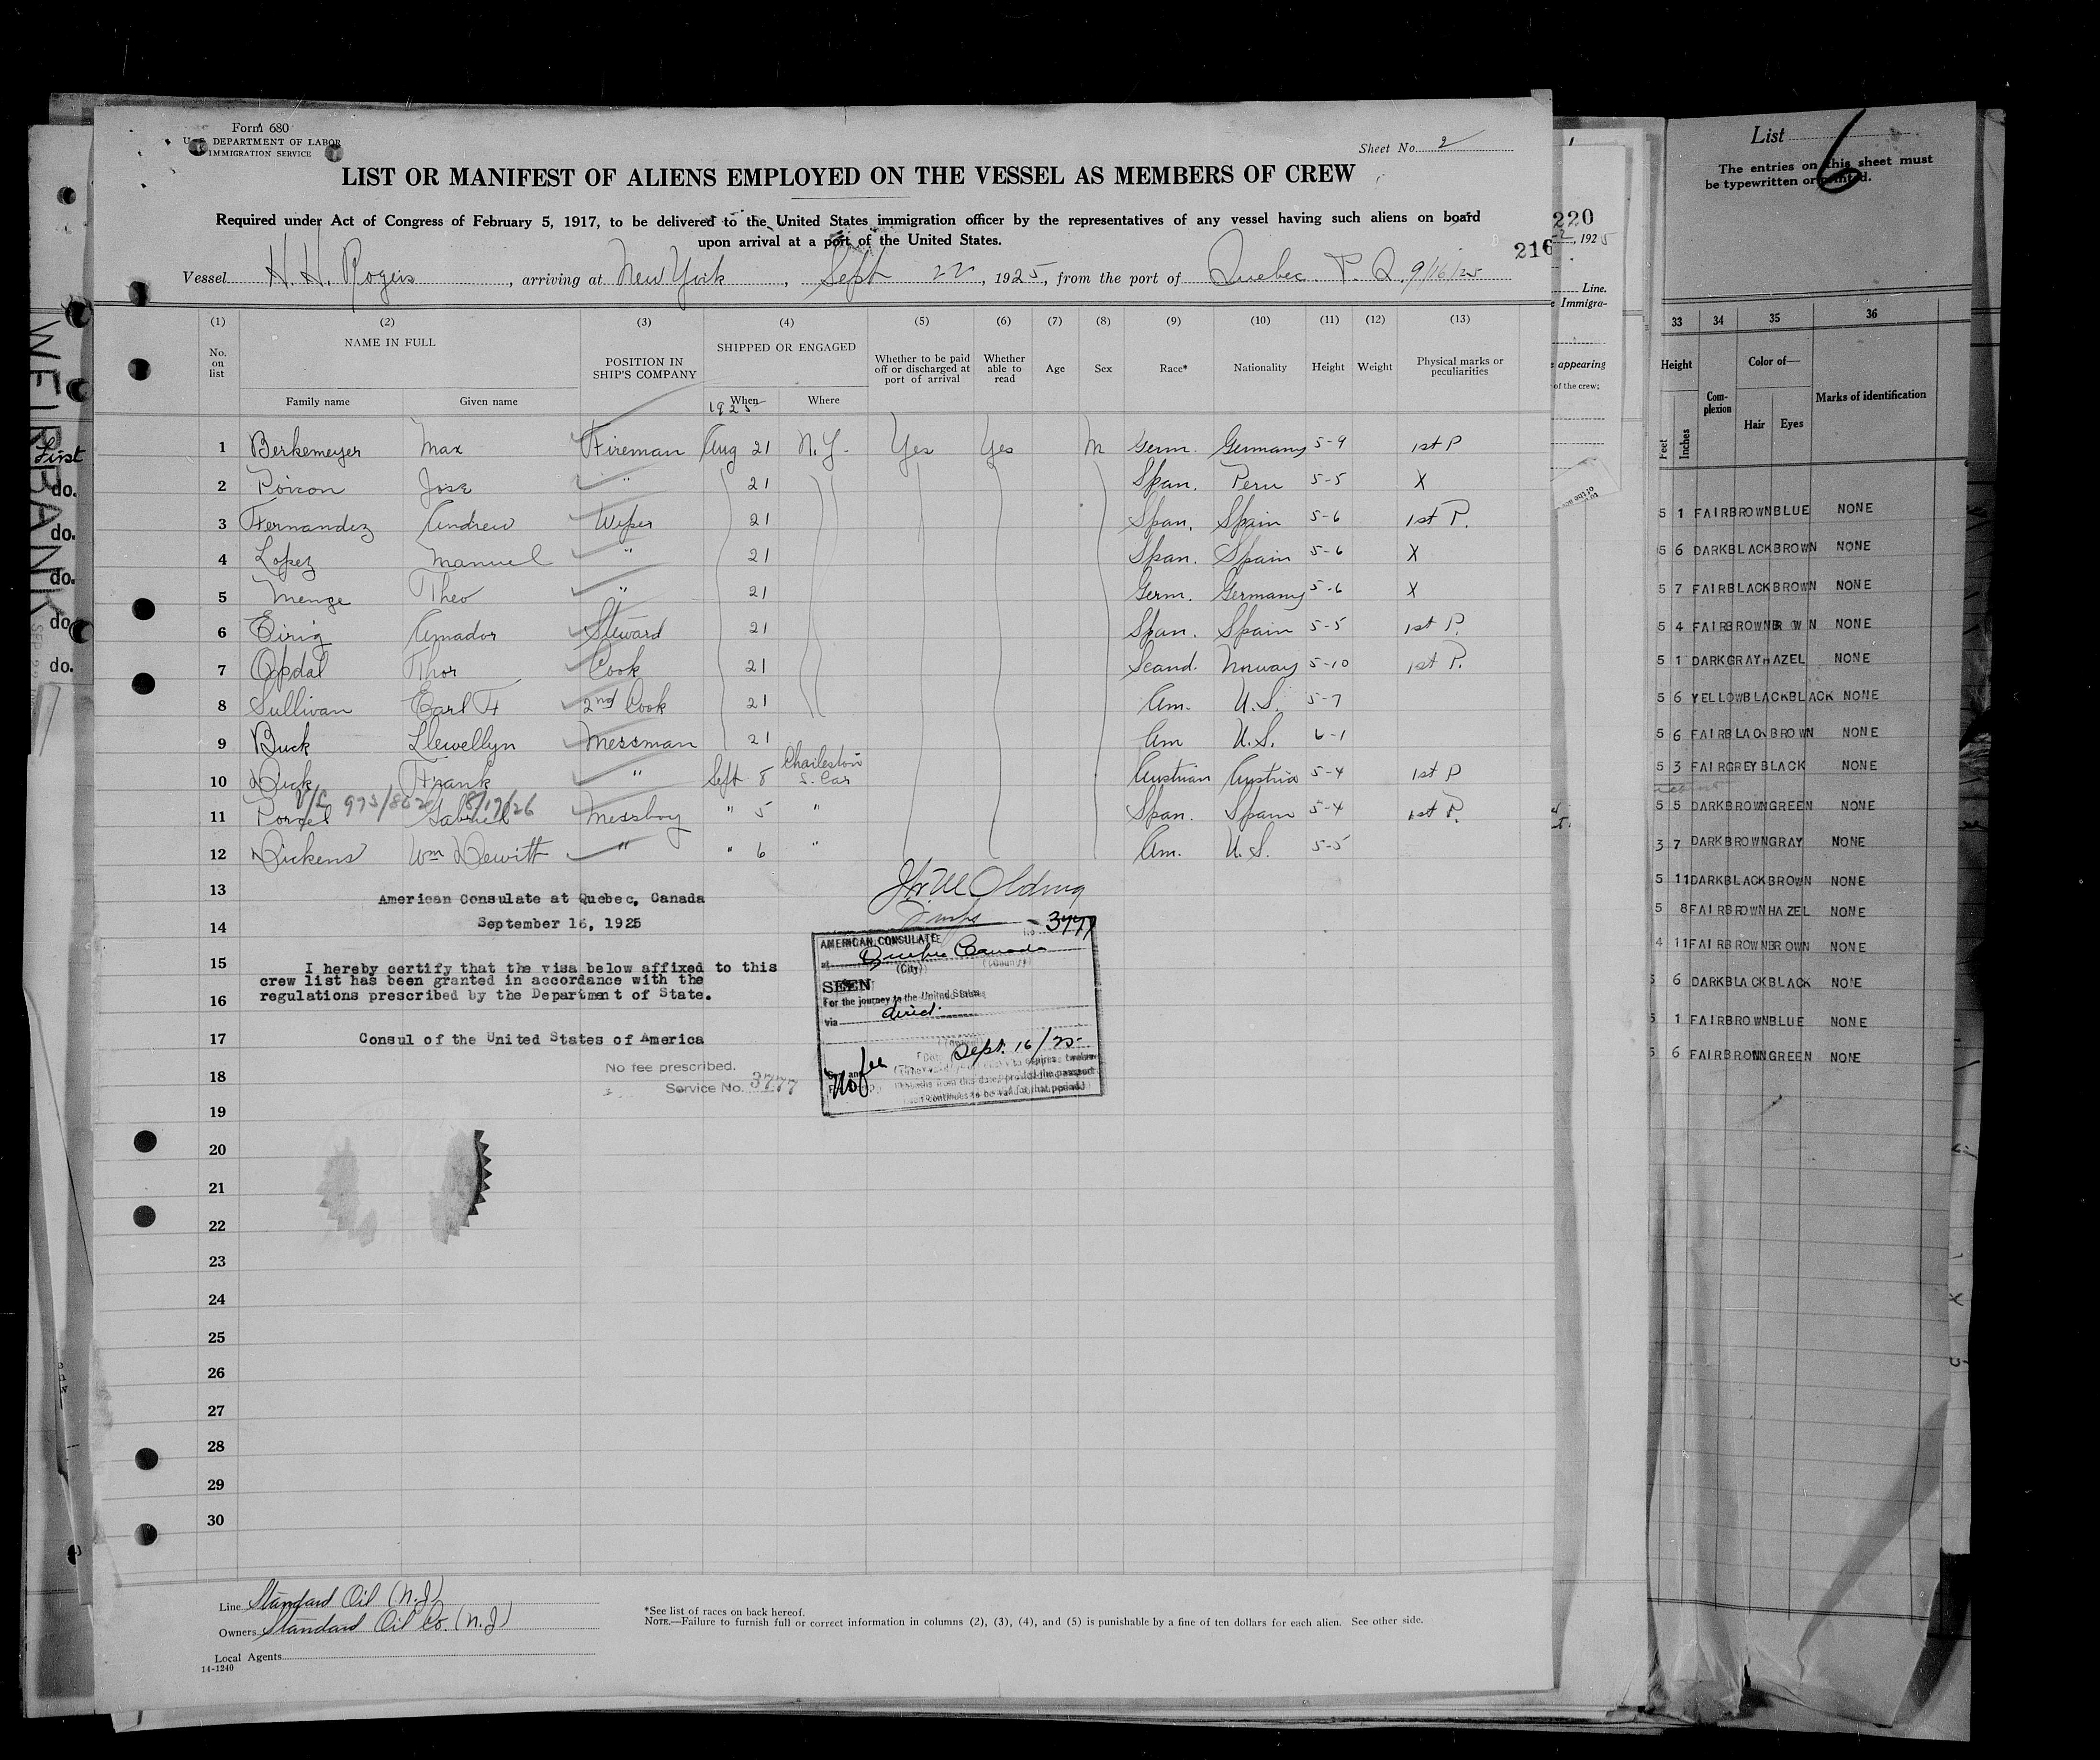 Form 680
U. S. DEPARTMENT OF LABOR
IMMIGRATION SERVICE
Sheet No. 2
LIST OR MANIFEST OF ALIENS EMPLOYED ON THE VESSEL AS MEMBERS OF CREW
Required under Act of Congress of February 5, 1917, to be delivered to the United States immigration officer by the representatives of any vessel having such aliens on board
upon arrival at a port of the United States.
216
Vessel H. H. Rogers, arriving at New York, Sept 22, 1925, from the port of Quebec P. Q. 9/16/25
(1) (2) (3) (4) (5) (6) (7) (8) (9) (10) (11) (12) (13)
No. on list NAME IN FULL POSITION IN SHIP'S COMPANY SHIPPED OR ENGAGED Whether to be paid off or discharged at port of arrival Whether able to read Age Sex Race* Nationality Height Weight Physical marks or peculiarities
Family name Given name When Where
1925
1 Berkemeyer Max Fireman Aug 21 N.Y. Yes Yes M Germ. Germany 5-9 1st P
2 Jose " 21 Span. Peru 5-5 X
3 Fernandez Andrew Wiper 21 Span. Spain 5-6 1st P.
4 Lopez Manuel " 21 Span. Spain 5-6 X
5 Menge Theo " 21 Germ. Germany 5-6 X
6 Eirig Amador Steward 21 Span. Spain 5-5 1st P.
7 Opdal Thor Cook 21 Scand. Norway 5-10 1st P.
8 Sullivan Earl 2nd Cook 21 Am. U.S. 5-7
9 Buck Llewellyn Messman 21 Am U.S. 6-1
10 Dick Frank " Sept 8 Charleston S. Car Austrian Austria 5-4 1st P
8/17/26
11 Porcel Gabriel Messboy " 5 " Span. Spain 5-4 1st P.
12 Dickens Wm Dewitt " " 6 " Am. U.S. 5-5
13
American Consulate at Quebec, Canada
14
September 16, 1925
15
I hereby certify that the visa below affixed to this
crew list has been granted in accordance with the
16
regulations prescribed by the Department of State.
17
Consul of the United States of America
No fee prescribed.
18
Service No. 3777
No. 3777
AMERICAN CONSULATE
at Quebec Canada
(City) (Country)
SEEN
For the journey to the United States
via direct.
Sept. 16/25
No fee
months from this date, provided the passport
continues to be valid for that period.
19
20
21
22
23
24
25
26
27
28
29
30
Line Standard Oil (N.J)
Owners Standard Oil Co. (N.J)
Local Agents
14-1240
*See list of races on back hereof.
NOTE.—Failure to furnish full or correct information in columns (2), (3), (4), and (5) is punishable by a fine of ten dollars for each alien. See other side.
WELRBANK
First
do.
do.
do.
do.
do.
220
, 1925
Line.
e Immigra-
e appearing
of the crew;
List
6
The entries on this sheet must
be typewritten or printed.
33 34 35 36
Height Complexion Color of— Marks of identification
Feet Inches Hair Eyes
5 1 FAIR BROWN BLUE NONE
5 6 DARK BLACK BROWN NONE
5 7 FAIR BLACK BROWN NONE
5 4 FAIR BROWN BROWN NONE
5 1 DARK GRAY HAZEL NONE
5 6 YELLOW BLACK BLACK NONE
5 6 FAIR BLACK BROWN NONE
5 3 FAIR GREY BLACK NONE
5 5 DARK BROWN GREEN NONE
3 7 DARK BROWN GRAY NONE
5 11 DARK BLACK BROWN NONE
5 8 FAIR BROWN HAZEL NONE
4 11 FAIR BROWN BROWN NONE
5 6 DARK BLACK BLACK NONE
5 1 FAIR BROWN BLUE NONE
5 6 FAIR BROWN GREEN NONE